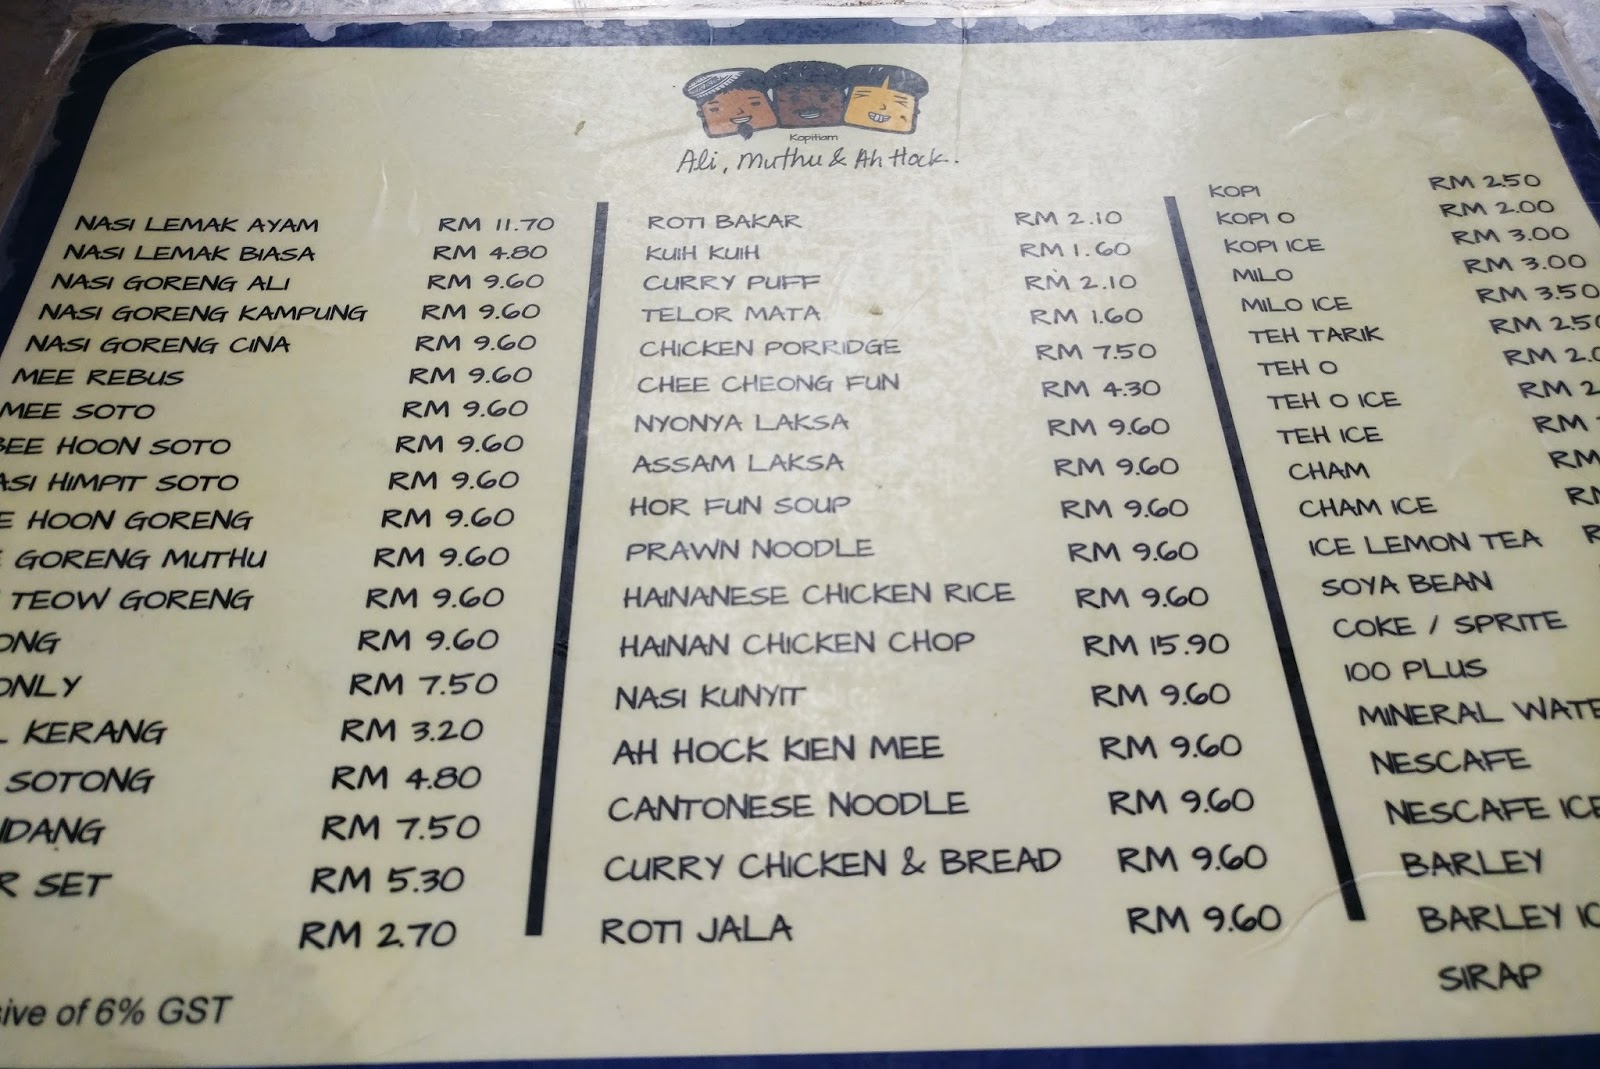 Kopitiam
Ali, Muthu & Ah Hock..
NASI LEMAK AYAM RM 11.70
NASI LEMAK BIASA RM 4.80
NASI GORENG ALI RM 9.60
NASI GORENG KAMPUNG RM 9.60
NASI GORENG CINA RM 9.60
MEE REBUS RM 9.60
MEE SOTO RM 9.60
BEE HOON SOTO RM 9.60
ASI HIMPIT SOTO RM 9.60
E HOON GORENG RM 9.60
E GORENG MUTHU RM 9.60
TEOW GORENG RM 9.60
ONG RM 9.60
ONLY RM 7.50
L KERANG RM 3.20
SOTONG RM 4.80
NDANG RM 7.50
R SET RM 5.30
RM 2.70
sive of 6% GST
ROTI BAKAR RM 2.10
KUIH KUIH RM 1.60
CURRY PUFF RM 2.10
TELOR MATA RM 1.60
CHICKEN PORRIDGE RM 7.50
CHEE CHEONG FUN RM 4.30
NYONYA LAKSA RM 9.60
ASSAM LAKSA RM 9.60
HOR FUN SOUP RM 9.60
PRAWN NOODLE RM 9.60
HAINANESE CHICKEN RICE RM 9.60
HAINAN CHICKEN CHOP RM 15.90
NASI KUNYIT RM 9.60
AH HOCK KIEN MEE RM 9.60
CANTONESE NOODLE RM 9.60
CURRY CHICKEN & BREAD RM 9.60
ROTI JALA RM 9.60
KOPI RM 2.50
KOPI O RM 2.00
KOPI ICE RM 3.00
MILO RM 3.00
MILO ICE RM 3.50
TEH TARIK RM 2.50
TEH O RM 2.0
TEH O ICE RM 2
TEH ICE RM
CHAM RM
CHAM ICE RM
ICE LEMON TEA R
SOYA BEAN
COKE / SPRITE
100 PLUS
MINERAL WATE
NESCAFE
NESCAFE ICE
BARLEY
BARLEY IC
SIRAP